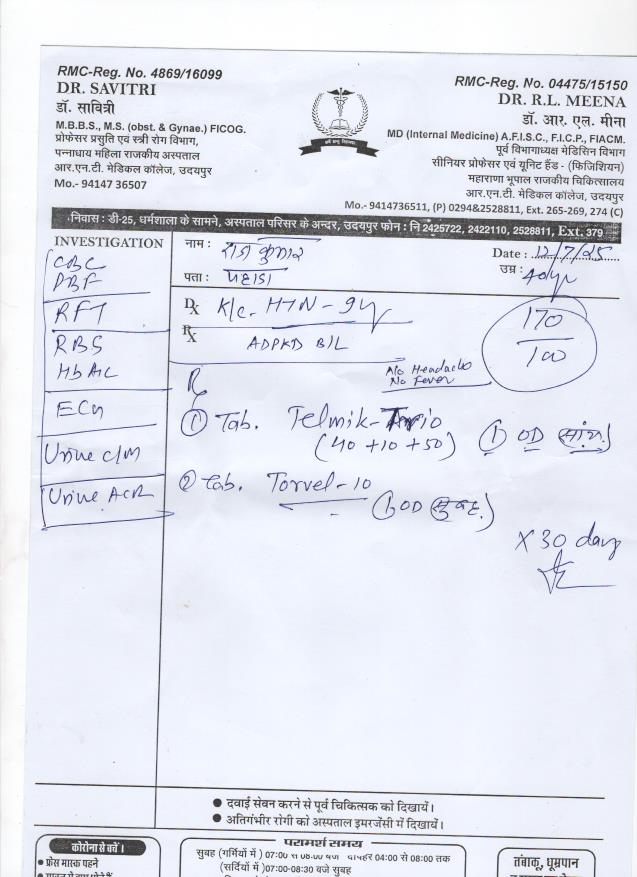 RMC-Reg. No. 4869/16099
DR. SAVITRI
डॉ. सावित्री
M.B.B.S., M.S. (obst. & Gynae.) FICOG.
प्रोफेसर प्रसुति एवं स्त्री रोग विभाग,
पन्नाधाय महिला राजकीय अस्पताल
आर.एन.टी. मेडिकल कॉलेज, उदयपुर
Mo.- 94147 36507
RMC-Reg. No. 04475/15150
DR. R.L. MEENA
डॉ. आर. एल. मीना
MD (Internal Medicine) A.F.I.S.C., F.I.C.P., FIACM.
पूर्व विभागाध्यक्ष मेडिसिन विभाग
सीनियर प्रोफेसर एवं यूनिट हैड - (फिजिशियन)
महाराणा भूपाल राजकीय चिकित्सालय
आर.एन.टी. मेडिकल कॉलेज, उदयपुर
Mo.- 9414736511, (P) 0294&2528811, Ext. 265-269, 274 (C)
निवास : डी-25, धर्मशाला के सामने, अस्पताल परिसर के अन्दर, उदयपुर फोन : नि 2425722, 2422110, 2528811, Ext. 379
INVESTIGATION
CBC
PBF
RFT
RBS
HbA1C
ECG
Urine c/m
Urine ACR
नाम : राज कुमार
Date : 12/7/25
पता : पहाडा
उम्र : 40yr
Dx K/c. HTN - 9y
Rx ADPKD B/L
170
100
A/o Headache
No Fever
R
① Tab. Telmik-Trio
(40 +10 +50) ① OD
② Tab. Torvel-10
① OD (सुबह.)
X 30 days
● दवाई सेवन करने से पूर्व चिकित्सक को दिखायें।
● अतिगंभीर रोगी को अस्पताल इमरजेंसी में दिखायें।
कोरोना से बचें।
● फ्रेस मास्क पहने
परामर्श समय
सुबह (गर्मियों में ) 07:00 से 08:00 बजे दोपहर 04:00 से 08:00 तक
(सर्दियों में ) 07:00-08:30 बजे सुबह
तंबाकू, धूम्रपान